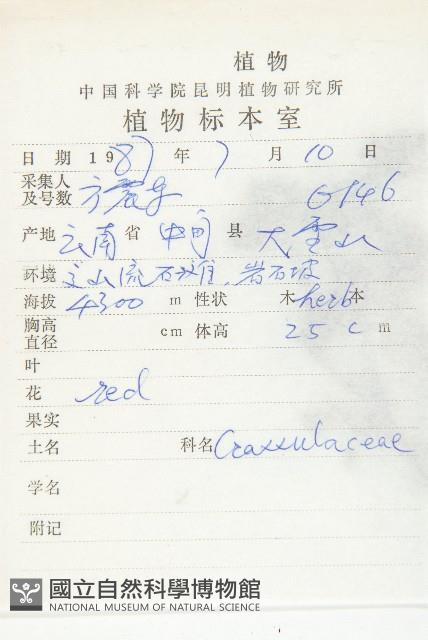 植物
中国科学院昆明植物研究所
植物标本室
日 期 1987 年 7 月 10 日
采集人
及号数 方震东 6146
产地 云南 省 中甸 县 大雪山
环境 高山流石滩、岩石坡
海拔 4300 m 性状 木 herb 本
胸高
直径 cm 体高 25 c m
叶
花 red
果实
土名 科名 Crassulaceae
学名
附记
國立自然科學博物館
NATIONAL MUSEUM OF NATURAL SCIENCE